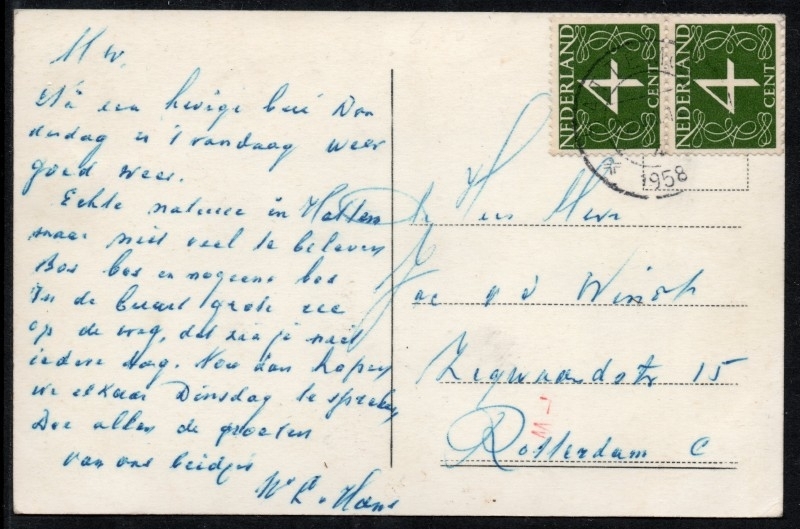 M W,
Na een hevige bui Don
derdag is 't vandaag weer
goed weer.
Echte natuur in Hattem
maar niet veel te beleven
Bos bos en nogeens bos
In de buurt grote zee
op de weg, dat zie je niet
iedere dag. Nou dan hopen
we elkaar Dinsdag te spreken
Doe allen de groeten
van ons beidjes
Hans
NEDERLAND
4
CENT
NEDERLAND
4
CENT
1958
de Heer Mevr
v d Winst
Zegwaardstr 15
Rotterdam C